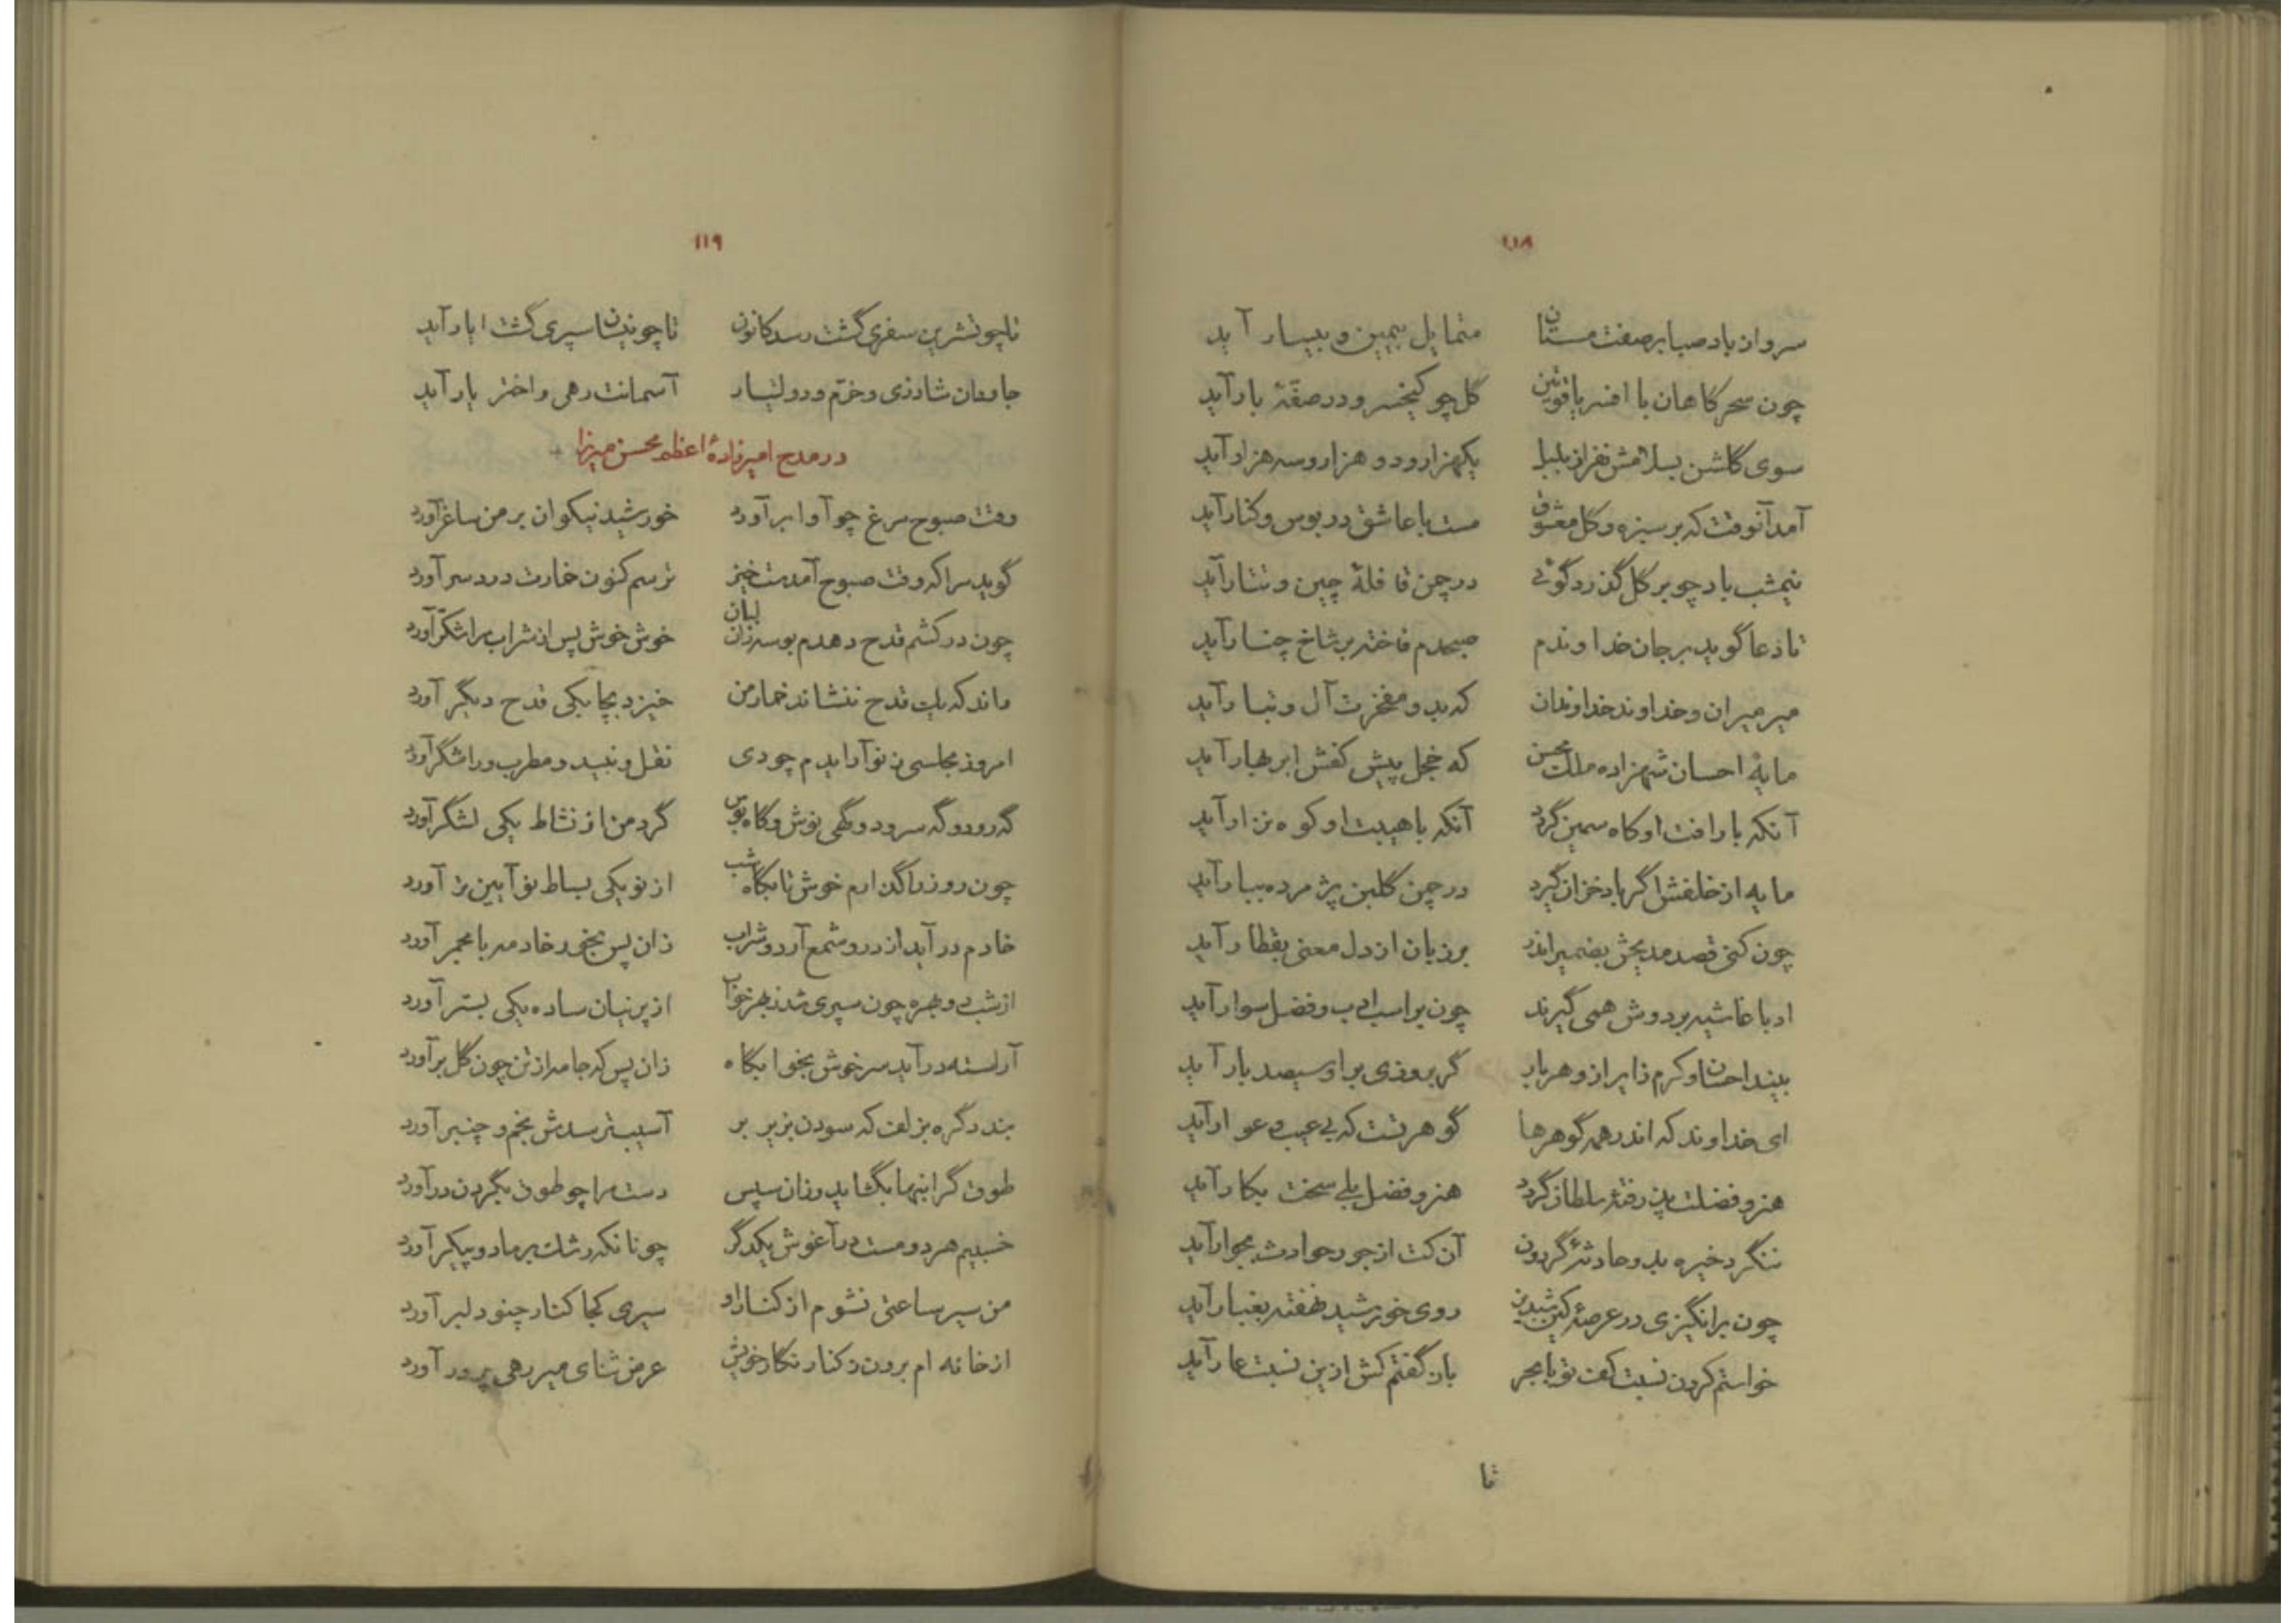 ۱۱۸
سرو از باد صبا بر صفت مستان متمایل بیمین و بیسار آید
چون سحرکاهان با افسر یاقوتین گل چو کیخسرو در صفهٔ بار آید
سوی گلشن بسلامش نفر از بلبل یکهزار و دو هزار و سه هزار آید
آمد آنوقت که بر سبزه و گل معشوق مست با عاشق در بوس و کنار آید
نیمشب باد چو بر گل گذرد گوئی در چمن قافلهٔ چین و تتار آید
تا دعا گوید بر جان خداوندم صبحدم فاخته بر شاخ چنار آید
میر میران و خداوند خداوندان که بدو مفخرت آل و تبار آید
مایهٔ احسان شهزاده ملک محسن که خجل پیش کفش ابر بهار آید
آنکه با رافت او کاه سمین گردد آنکه با هیبت او کوه نزار آید
مایه از خلقش اگر باد خزان گیرد در چمن گلبن پژمرده ببار آید
چون کنی قصد مدیحش بضمیر اندر بر زبان از دل معنی بقطار آید
ادبا غاشیه بر دوش همی گیرند چون بر اسب ادب و فضل سوار آید
بیند احسان و کرم زایر ازو هر بار گر بروزی بر او سیصد بار آید
ای خداوند که اندر همه گوهرها گوهر تست که بی عیب و عوار آید
هنر و فضلت رفته سلطان گردد هنر و فضل بلی سخت بکار آید
ننگرد خیره بدو حادثهٔ گردون آن کت از جور حوادث بجوار آید
چون برانگیزی در عرصهٔ کین شبدیز روی خورشید نهفته بغبار آید
خواستم کردن نسبت کف تو با بحر باز گفتم کش ازین نسبت عار آید
تا
۱۱۹
تا چو تشرین سفری گشت رسد کانون تا چو نیسان سپری گشت ایار آید
جاودان شادزی و خرم و دولتیار آسمانت رهی و اختر یار آید
در مدح امیرزادهٔ اعظم محسن میرزا
وقت صبوح مرغ چو آوا برآورد خورشید نیکوان بر من ساغر آورد
گوید مرا که وقت صبوح آمدست خیز ترسم کنون خمارت دردسر آورد
چون درکشم قدح دهدم بوسه زان لبان خوش خوش پس از شراب مرا شکر آورد
داند که یک قدح ننشاند خمار من خیزد بچابکی قدح دیگر آورد
امروز مجلسی ز نو آرایدم چو دی نقل و نبید و مطرب و رامشگر آورد
گه رود و گه سرود و گهی نوش و گاه بوس گرد من از نشاط یکی لشگر آورد
چون روز را گذارم خوش تا بگاه شب از نو یکی بساط نو آیین تر آورد
خادم درآید از در و شمع آرد و شراب زان پس بخور خادمه با مجمر آورد
از شب دو بهره چون سپری شد ز بهر خواب از پرنیان ساده یکی بستر آورد
آراسته درآید سرخوش بخوابگاه زان پس که جامه از تن چون گل برآورد
بندد گره بزلف که سودن بزیر بر آسیب ترسدش بخم و چنبر آورد
طوق گرانبها بگشاید وزان سپس دست مرا چو طوق بگردن درآورد
خسبیم هر دو مست در آغوش یکدگر چونانکه رشک بر ما دو پیکر آورد
من سیر ساعتی نشوم از کنار او سیری کجا کنار چنو دلبر آورد
از خانه ام برون ز کنار نگار خویش عرض ثنای میر رهی پرور آورد